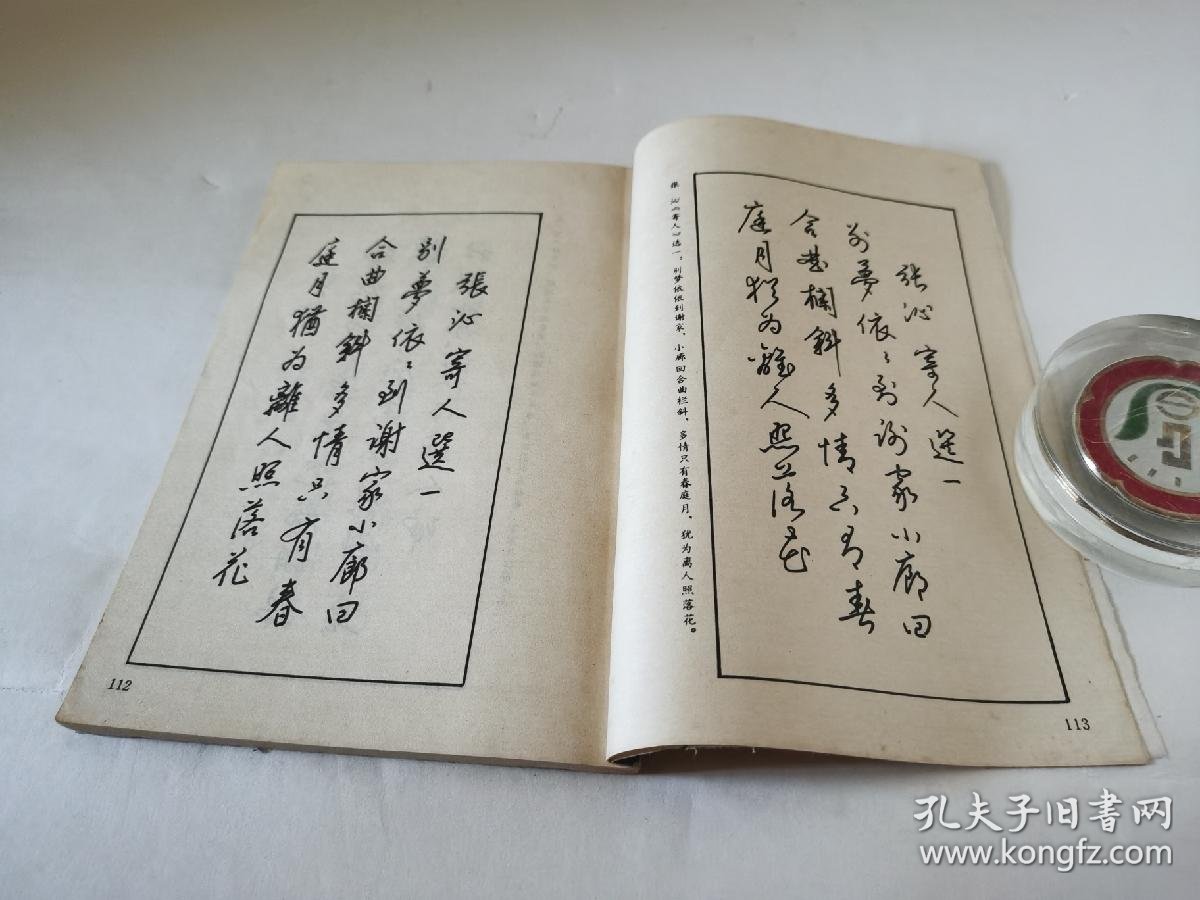 張沁寄人選一
别夢依〻到谢家小廊回
合曲欄斜多情只有春
庭月猶为離人照落花
112
张沁《寄人》选一：别梦依依到谢家，小廊回合曲栏斜，多情只有春庭月，犹为离人照落花。
張沁寄人選一
别夢依〻到谢家小廊回
合曲欄斜多情只有春
庭月猶为離人照落花
113
孔夫子旧书网
www.kongfz.com